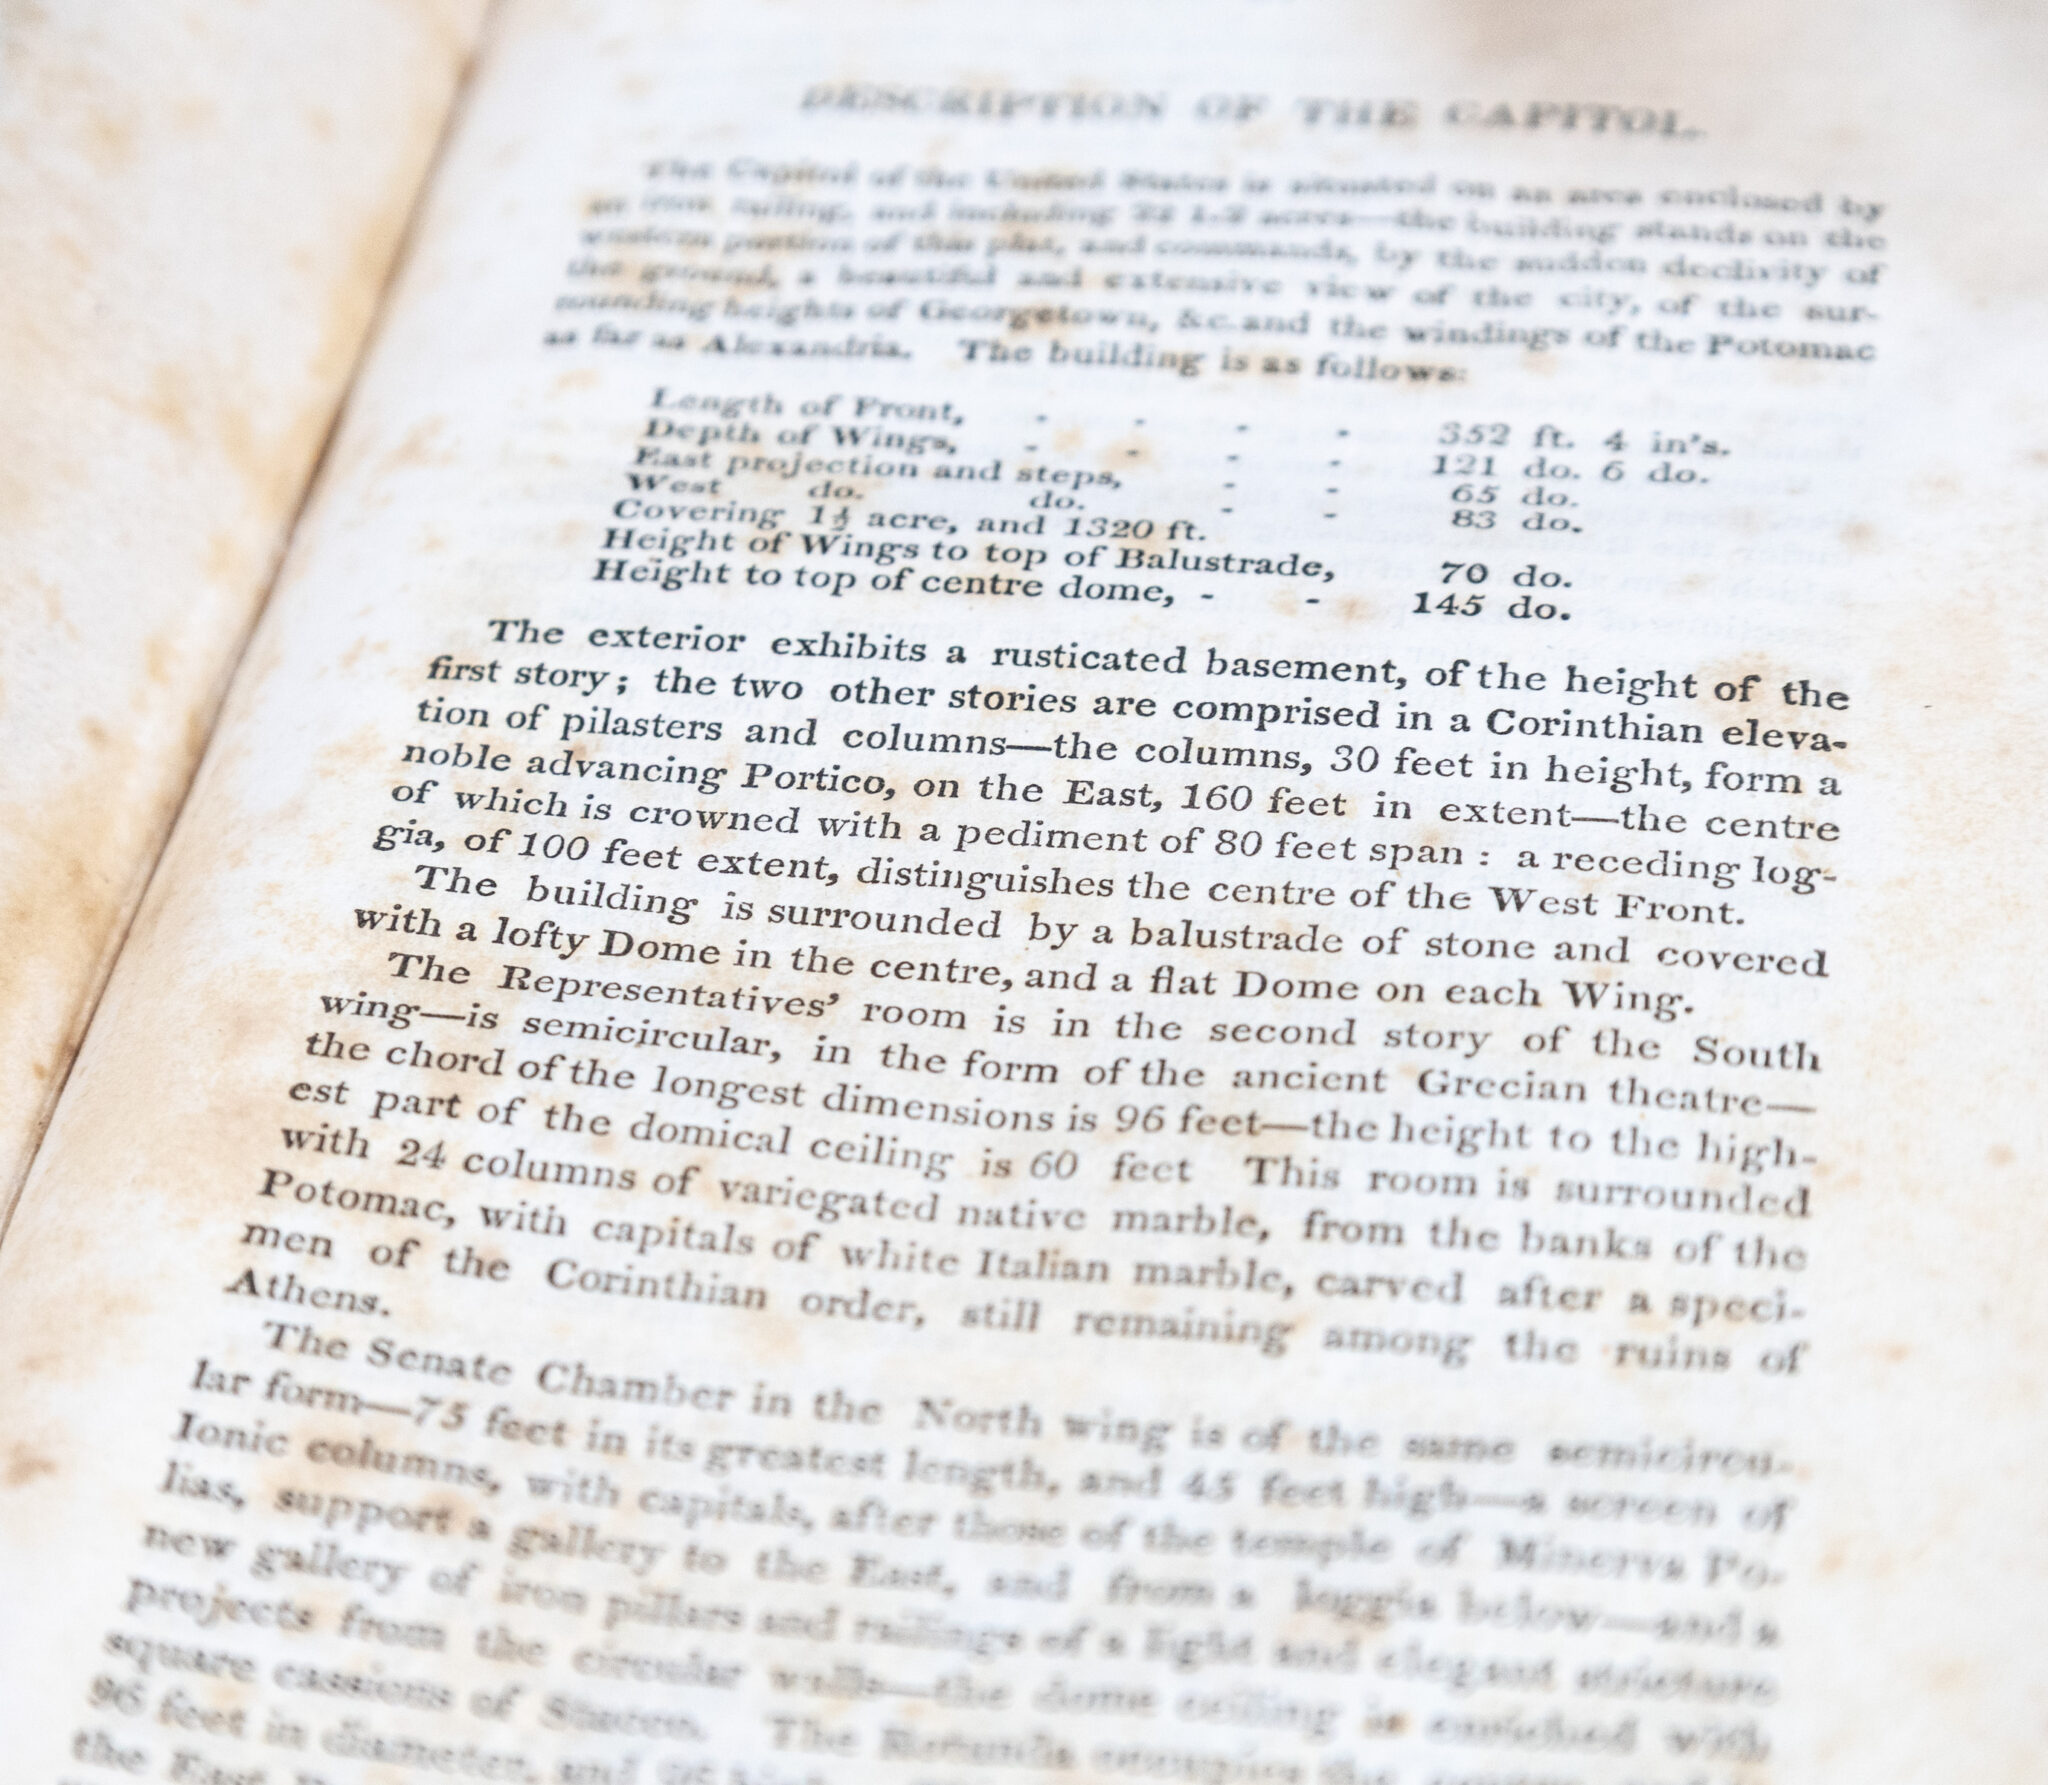 DESCRIPTION OF THE CAPITOL.
The Capitol of the United States is situated on an area enclosed by
an iron railing, and including 22 1-2 acres—the building stands on the
western portion of this plat, and commands, by the sudden declivity of
the ground, a beautiful and extensive view of the city, of the sur-
rounding heights of Georgetown, &c. and the windings of the Potomac
as far as Alexandria. The building is as follows:
Length of Front, - - - - 352 ft. 4 in's.
Depth of Wings, - - - - 121 do. 6 do.
East projection and steps, - - 65 do.
West do. do. - - 83 do.
Covering 1½ acre, and 1320 ft.
Height of Wings to top of Balustrade, 70 do.
Height to top of centre dome, - - 145 do.
The exterior exhibits a rusticated basement, of the height of the
first story; the two other stories are comprised in a Corinthian eleva-
tion of pilasters and columns—the columns, 30 feet in height, form a
noble advancing Portico, on the East, 160 feet in extent—the centre
of which is crowned with a pediment of 80 feet span : a receding log-
gia, of 100 feet extent, distinguishes the centre of the West Front.
The building is surrounded by a balustrade of stone and covered
with a lofty Dome in the centre, and a flat Dome on each Wing.
The Representatives' room is in the second story of the South
wing—is semicircular, in the form of the ancient Grecian theatre—
the chord of the longest dimensions is 96 feet—the height to the high-
est part of the domical ceiling is 60 feet This room is surrounded
with 24 columns of variegated native marble, from the banks of the
Potomac, with capitals of white Italian marble, carved after a speci-
men of the Corinthian order, still remaining among the ruins of
Athens.
The Senate Chamber in the North wing is of the same semicircu-
lar form—75 feet in its greatest length, and 45 feet high—a screen of
Ionic columns, with capitals, after those of the temple of Minerva Po-
lias, support a gallery to the East, and from a loggia below—and a
new gallery of iron pillars and railings of a light and elegant structure
projects from the circular walls—the dome ceiling is enriched with
square cassions of Stucco. The Rotunda occupies the
96 feet in diameter, and
the East